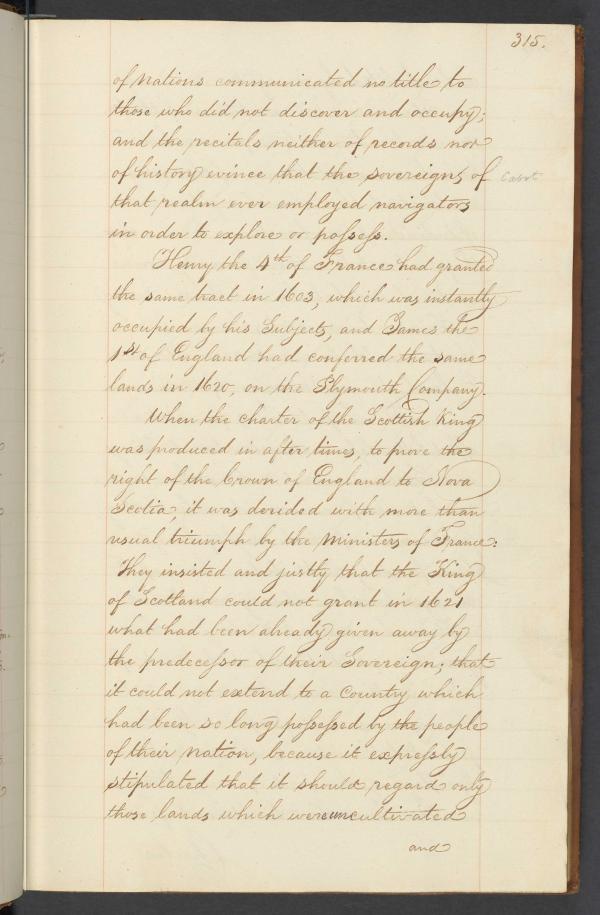 315.
of Nations communicated no title to
those who did not discover and occupy;
and the recitals neither of records nor
of history evince that the sovereigns of Cabot
that realm ever employed navigators
in order to explore or poſseſs.
Henry the 4th of France had granted
the same tract in 1603, which was instantly
occupied by his Subjects, and James the
1st of England had conferred the same
lands in 1620, on the Plymouth Company.
When the charter of the Scottish King
was produced in after times, to prove the
right of the Crown of England to Nova
Scotia, it was derided with more than
usual triumph by the Ministers of France:
They insisted and justly that the King
of Scotland could not grant in 1621
what had been already given away by
the predeceſsor of their Sovereign; that
it could not extend to a Country which
had been so long poſseſsed by the people
of their Nation, because it expreſsly
stipulated that it should regard only
those lands which were uncultivated
and